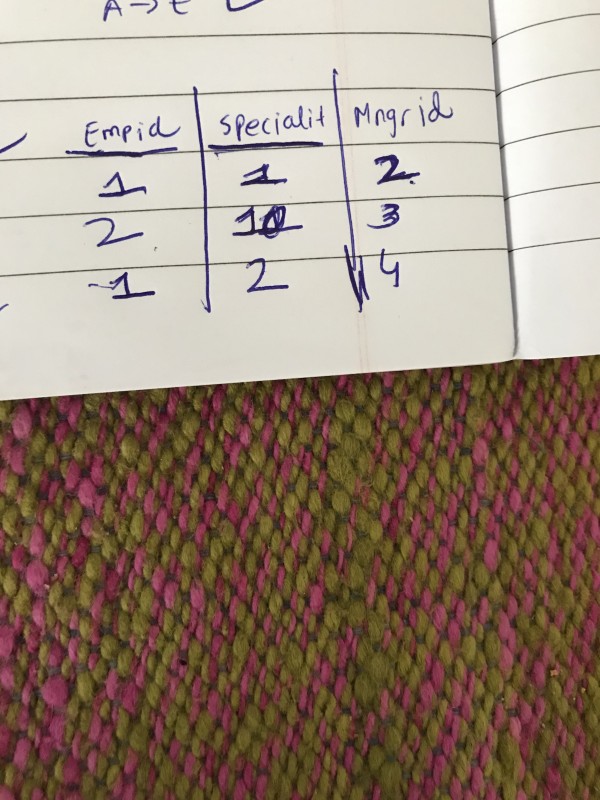 A → E
Empid Specialit Mngrid
1 1 2
2 1 3
1 2 4